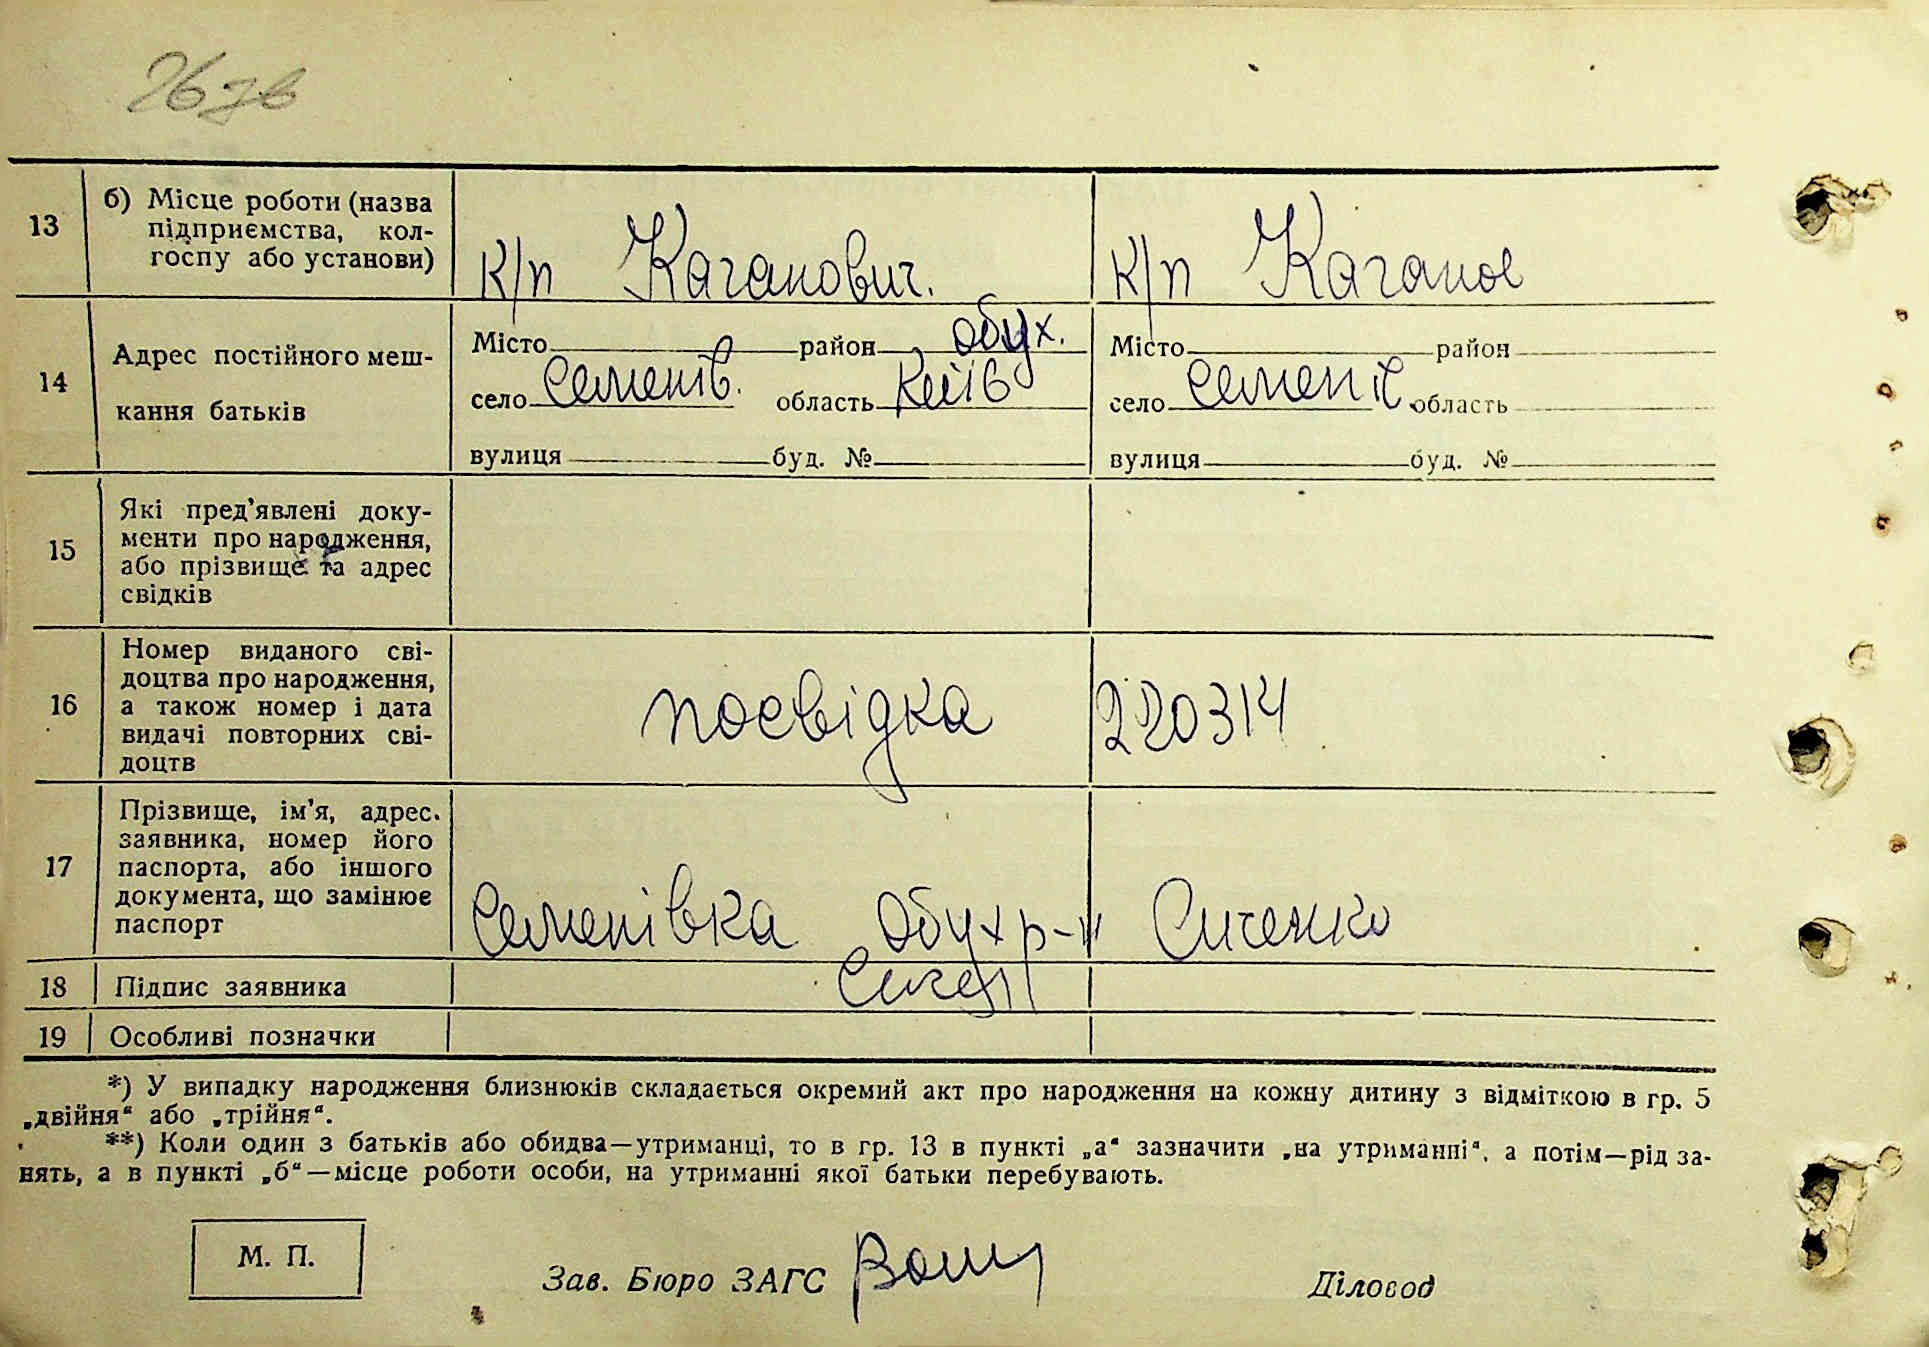 26 зв
13 б) Місце роботи (назва
підприємства, кол-
госпу або установи)
к/п Каганович. к/п Каганов
14 Адрес постійного меш-
кання батьків
Місто район Обух. Місто район
село Семенів. область Київ село Семенів область
вулиця буд. № вулиця буд. №
15 Які пред'явлені доку-
менти про народження,
або прізвище та адрес
свідків
16 Номер виданого сві-
доцтва про народження,
а також номер і дата
видачі повторних сві-
доцтв
посвідка 220314
17 Прізвище, ім'я, адрес.
заявника, номер його
паспорта, або іншого
документа, що замінює
паспорт
Семенівка Обух р-н Сиченко
18 Підпис заявника
19 Особливі позначки
*) У випадку народження близнюків складається окремий акт про народження на кожну дитину з відміткою в гр. 5
„двійня“ або „трійня“.
**) Коли один з батьків або обидва—утриманці, то в гр. 13 в пункті „а“ зазначити „на утриманні“, а потім—рід за-
нять, а в пункті „б“—місце роботи особи, на утриманні якої батьки перебувають.
М. П.
Зав. Бюро ЗАГС Діловод